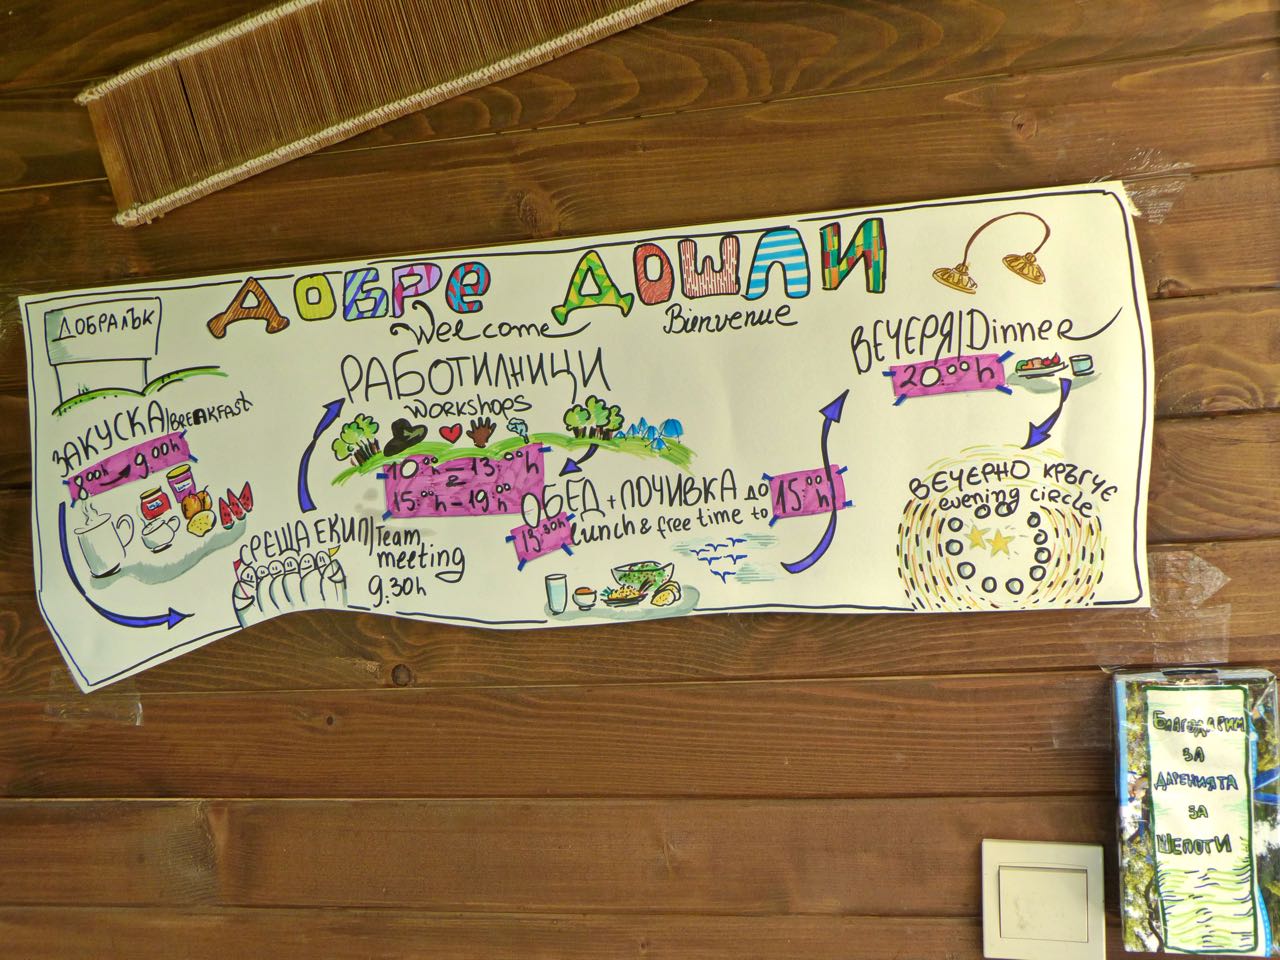 ДОБРЕ ДОШЛИ
Welcome
Bienvenue
ДОБРАЛЪК
ЗАКУСКА/BREAKFAST
8:00h 9:00h
СРЕЩА ЕКИП/Team
meeting
9:30h
РАБОТИЛНИЦИ
WORKSHOPS
10:00h - 13:00h
15:00h - 19:00h
ОБЕД + ПОЧИВКА ДО 15:00h
13:30h lunch & free time to
ВЕЧЕРЯ/Dinner
20:00h
ВЕЧЕРНО КРЪГЧЕ
evening circle
БЛАГОДАРИМ
ЗА
ДАРЕНИЯТА
ЗА
ШЕПОТИ